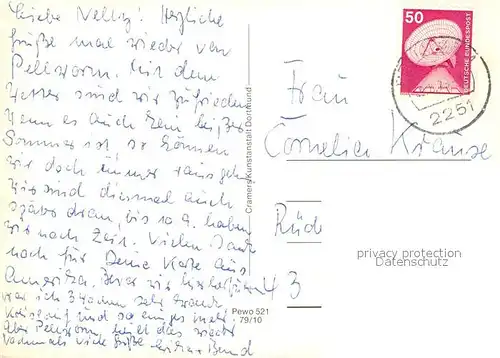 Liebe Nelly! Herzliche
Grüße mal wieder von
Pellworm. Mit dem
Wetter sind wir zufrieden
wenn es auch kein heißer
Sommer ist so können
wir doch immer raus gehen
Wir sind diesmal auch
später dran, bis 10.9. haben
wir noch Zeit. Vielen Dank
noch für Deine Karte aus
Amerika. Bevor wir hierher
war ich 3 sehr krank
und so einiges mehr.
Aber Pellworm das wieder
Nochmals viele Grüße Bernd
Cramers Kunstanstalt Dortmund
Pewo 521
79/10
50
DEUTSCHE BUNDESPOST
2251
Frau
Cornelia Krause
Rüd
43
privacy protection
Datenschutz